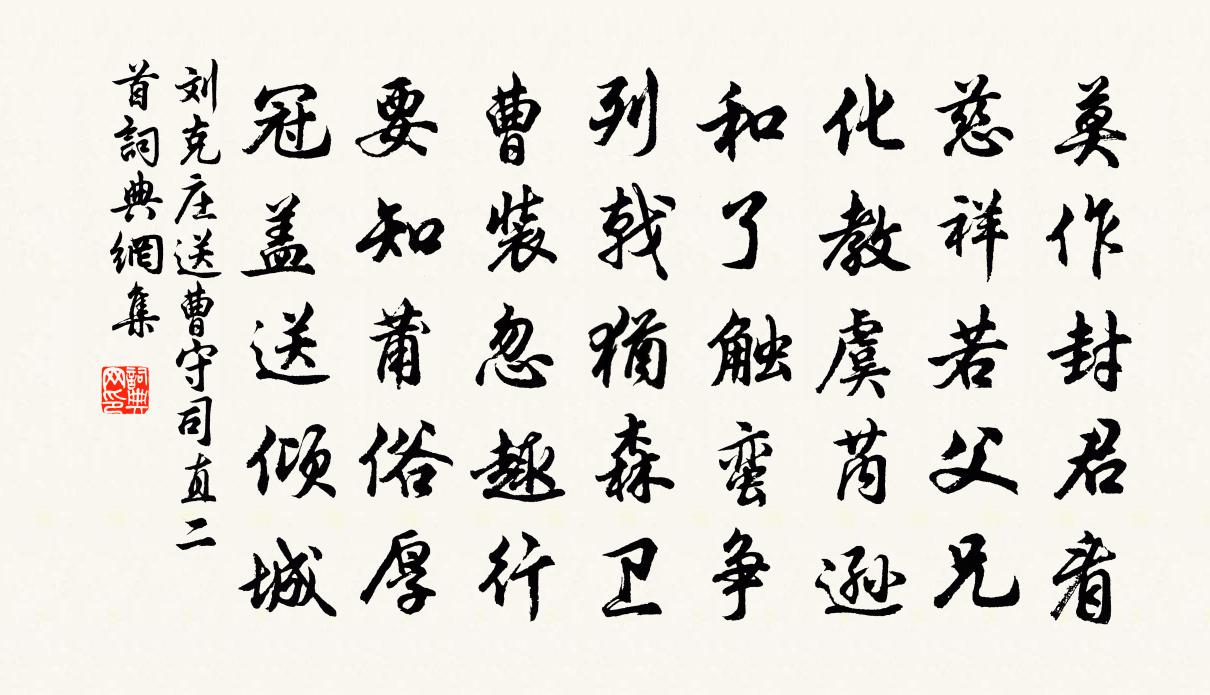 莫作封君看
慈祥若父兄
化教虞芮逊
和了触蛮争
列戟犹森卫
曹装忽趣行
要知莆俗厚
冠盖送倾城
刘克庄送曹守司直二
首詞典網集
詞典网印